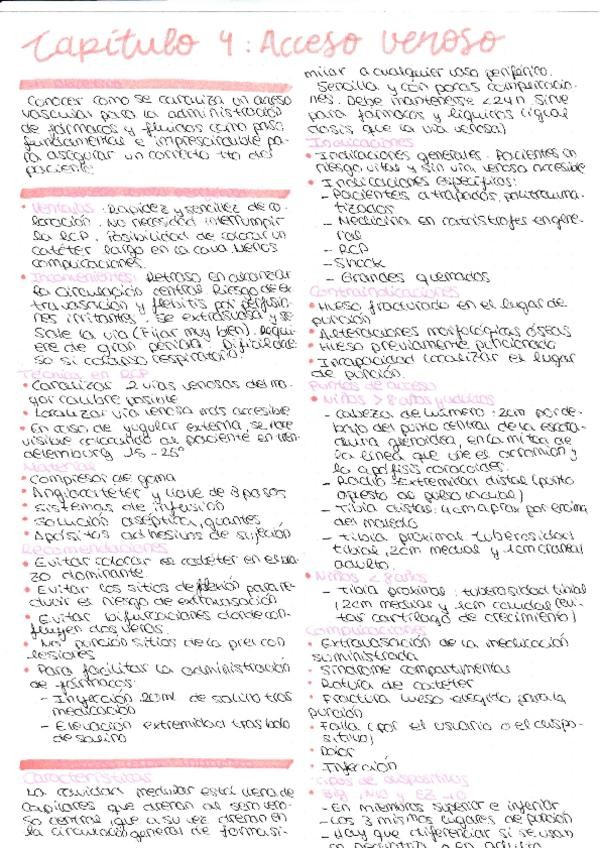 Capítulo 4: Acceso venoso
Conocer como se canaliza un acceso
vascular para la administración
de fármacos y fluidos como paso
fundamental e imprescindible pa-
ra asegurar un correcto tto del
paciente.
• Ventajas: Rapidez y sencillez de co-
locación. No necesidad interrumpir
la RCP. Posibilidad de colocar un
catéter largo en la cava. Menos
complicaciones.
• Inconvenientes: Retraso en alcanzar
la circulación central. Riesgo de ex-
travasación y flebitis por perfusio-
nes irritantes. Se extravasa y se
sale la vía (Fijar muy bien). Requi-
ere de gran pericia. Dificultade-
so si colapso respiratorio.
Técnica en RCP
• Canalizar 2 vías venosas del ma-
yor calibre posible
• Localizar vía venosa más accesible
• En caso de yugular externa, se hace
visible colocando al paciente en tren-
delemburg 15-25°
Material
• Compresor de goma
• Angiocatéter y llave de 3 pasos
• Sistemas de infusión
• Solución aséptica, guantes
• Apósitos adhesivos de sujeción
Recomendaciones
• Evitar colocar el catéter en el bra-
zo dominante.
• Evitar los sitios de flexión para re-
ducir el riesgo de extravasación
• Evitar bifurcaciones donde con-
fluyen dos venas.
• No punción sitios de la piel con
lesiones
• Para facilitar la administración
de fármacos:
- Inyección 20ml de salino tras
medicación
- Elevación extremidad tras bolo
de salino
Características
La cavidad medular está llena de
capilares que drenan al seno veno-
so central que a su vez drenan en
la circulación general de forma si-
milar a cualquier vaso periférico.
Sencilla y con pocas complicacio-
nes. Debe mantenerse <24h. Sirve
para fármacos y líquidos (igual
dosis que la vía venosa)
Indicaciones
• Indicaciones generales. Pacientes en
riesgo vital y sin vía venosa accesible
• Indicaciones específicas:
- Pacientes atrapados, politrauma-
tizados
- Medicina en catástrofes en gene-
ral
- RCP
- Shock
- Grandes quemados
Contraindicaciones
• Hueso fracturado en el lugar de
punción
• Alteraciones morfológicas óseas
• Hueso previamente puncionado
• Incapacidad localizar el lugar
de punción.
Puntos de acceso
• Niños > 8 años y adultos
- Cabeza de húmero: 2cm por de-
bajo del punto central de la escota-
dura glenoidea, en la mitad de
la línea que une el acromion y
la apófisis coracoides.
- Radio: Extremidad distal (punto
opuesto al pulso radial)
- Tibia distal: 4cm aprox por encima
del maleolo
- Tibia proximal: tuberosidad
tibial, 2cm medial y 1cm craneal
adulto.
• Niños < 8 años
- Tibia proximal: tuberosidad tibial
(2cm medial y 1cm caudal (evi-
tar cartílago de crecimiento)
Complicaciones
• Extravasación de la medicación
suministrada
• Síndrome compartimental
• Rotura de catéter
• Fractura hueso elegido para la
punción.
• Falla (por el usuario o el dispo-
sitivo)
• Dolor
• Infección
Tipos de dispositivos
- En miembros superior e inferior
- Los 3 mismos lugares de punción
- Hay que diferenciar si se usan